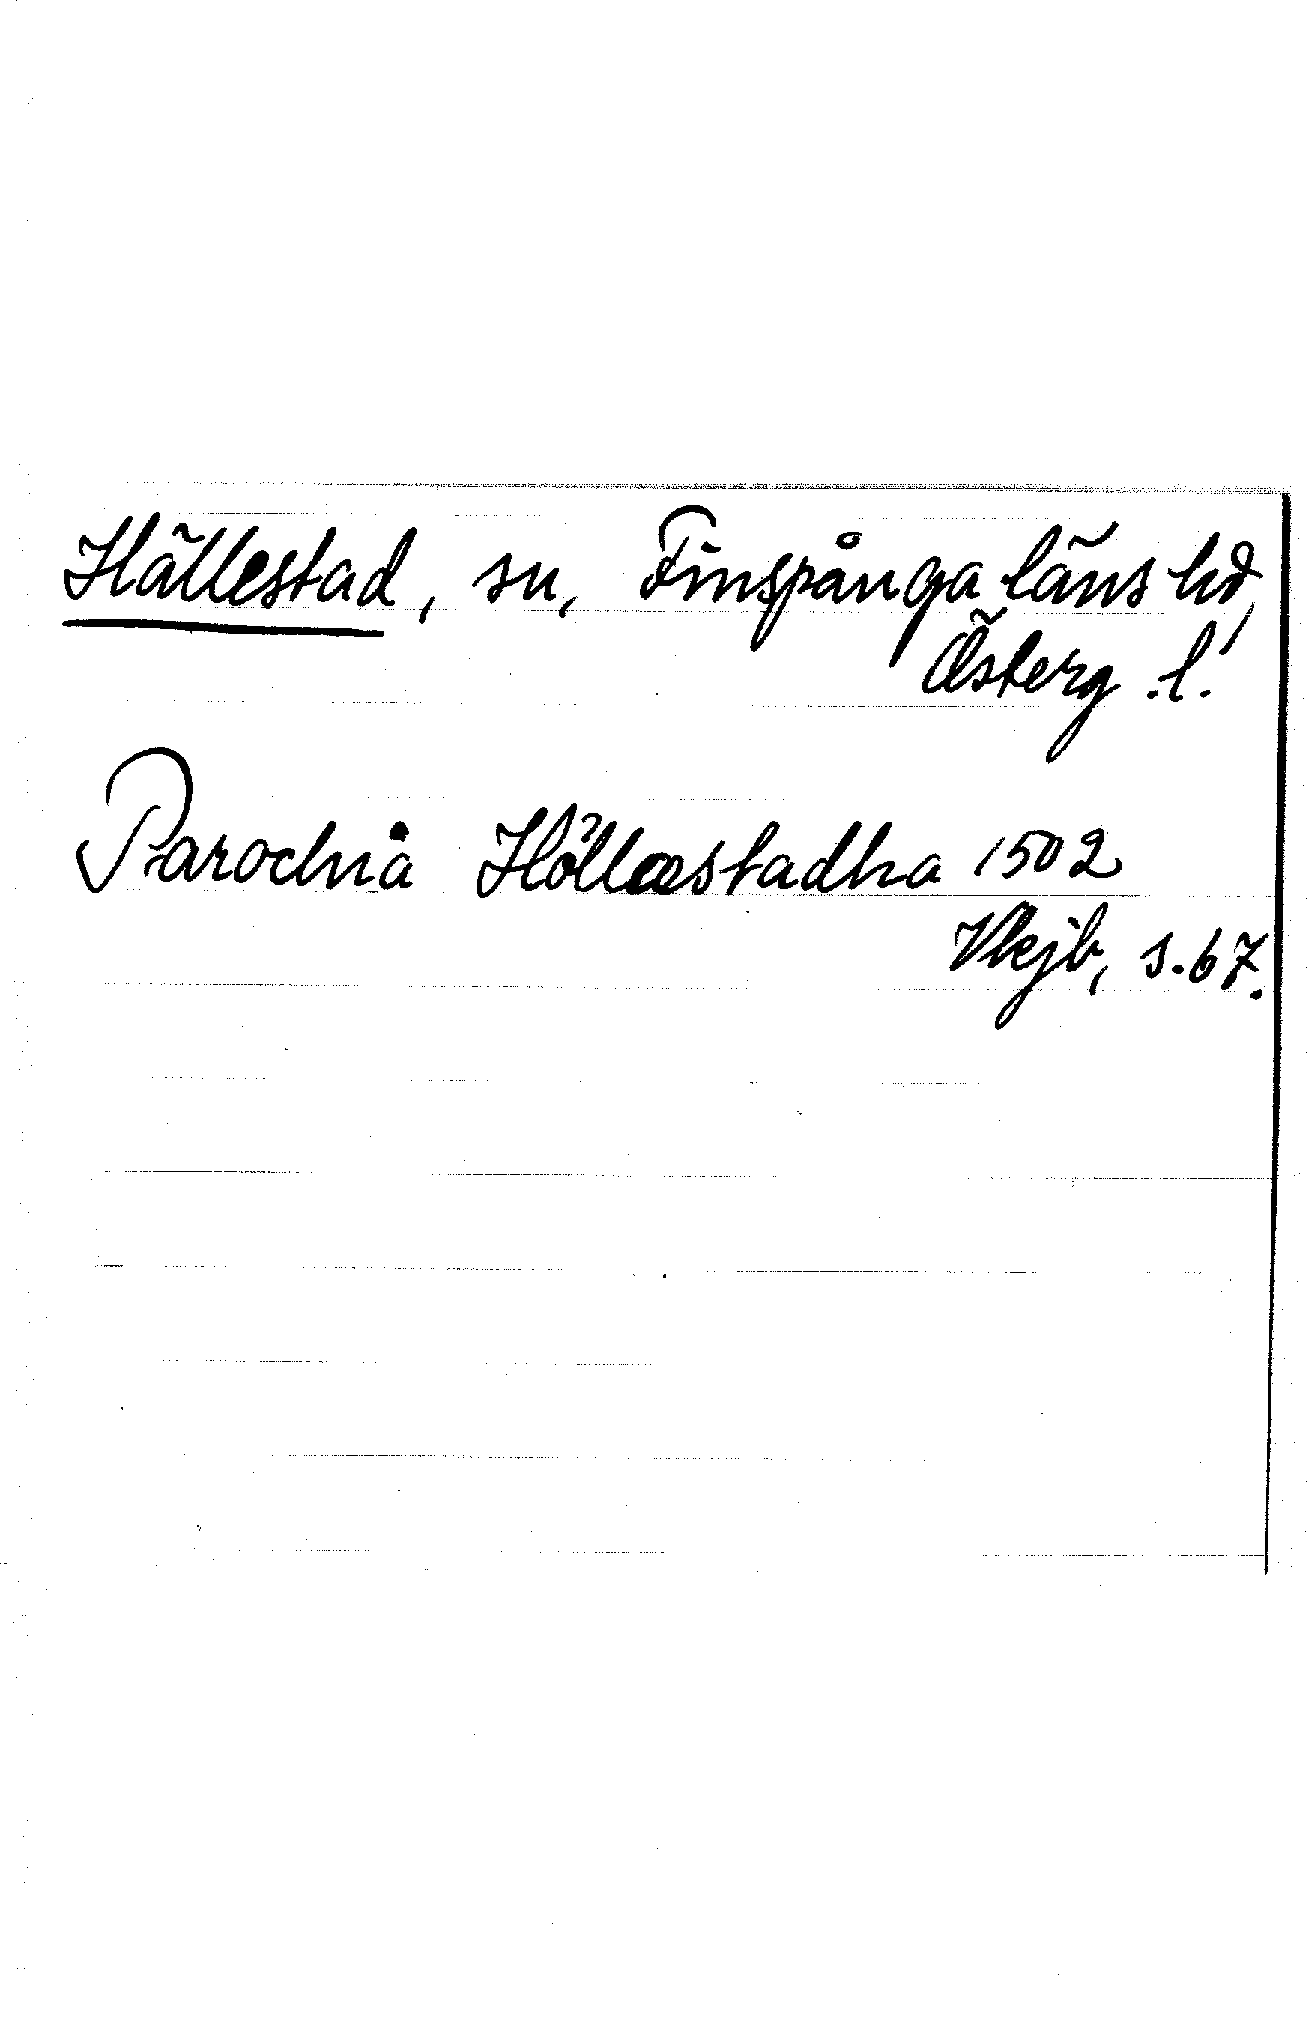 Hällestad, sn, Finspånga läns hd,
Österg. l.
Parochia Höllæstadha 1502
Vkjb, s. 67.